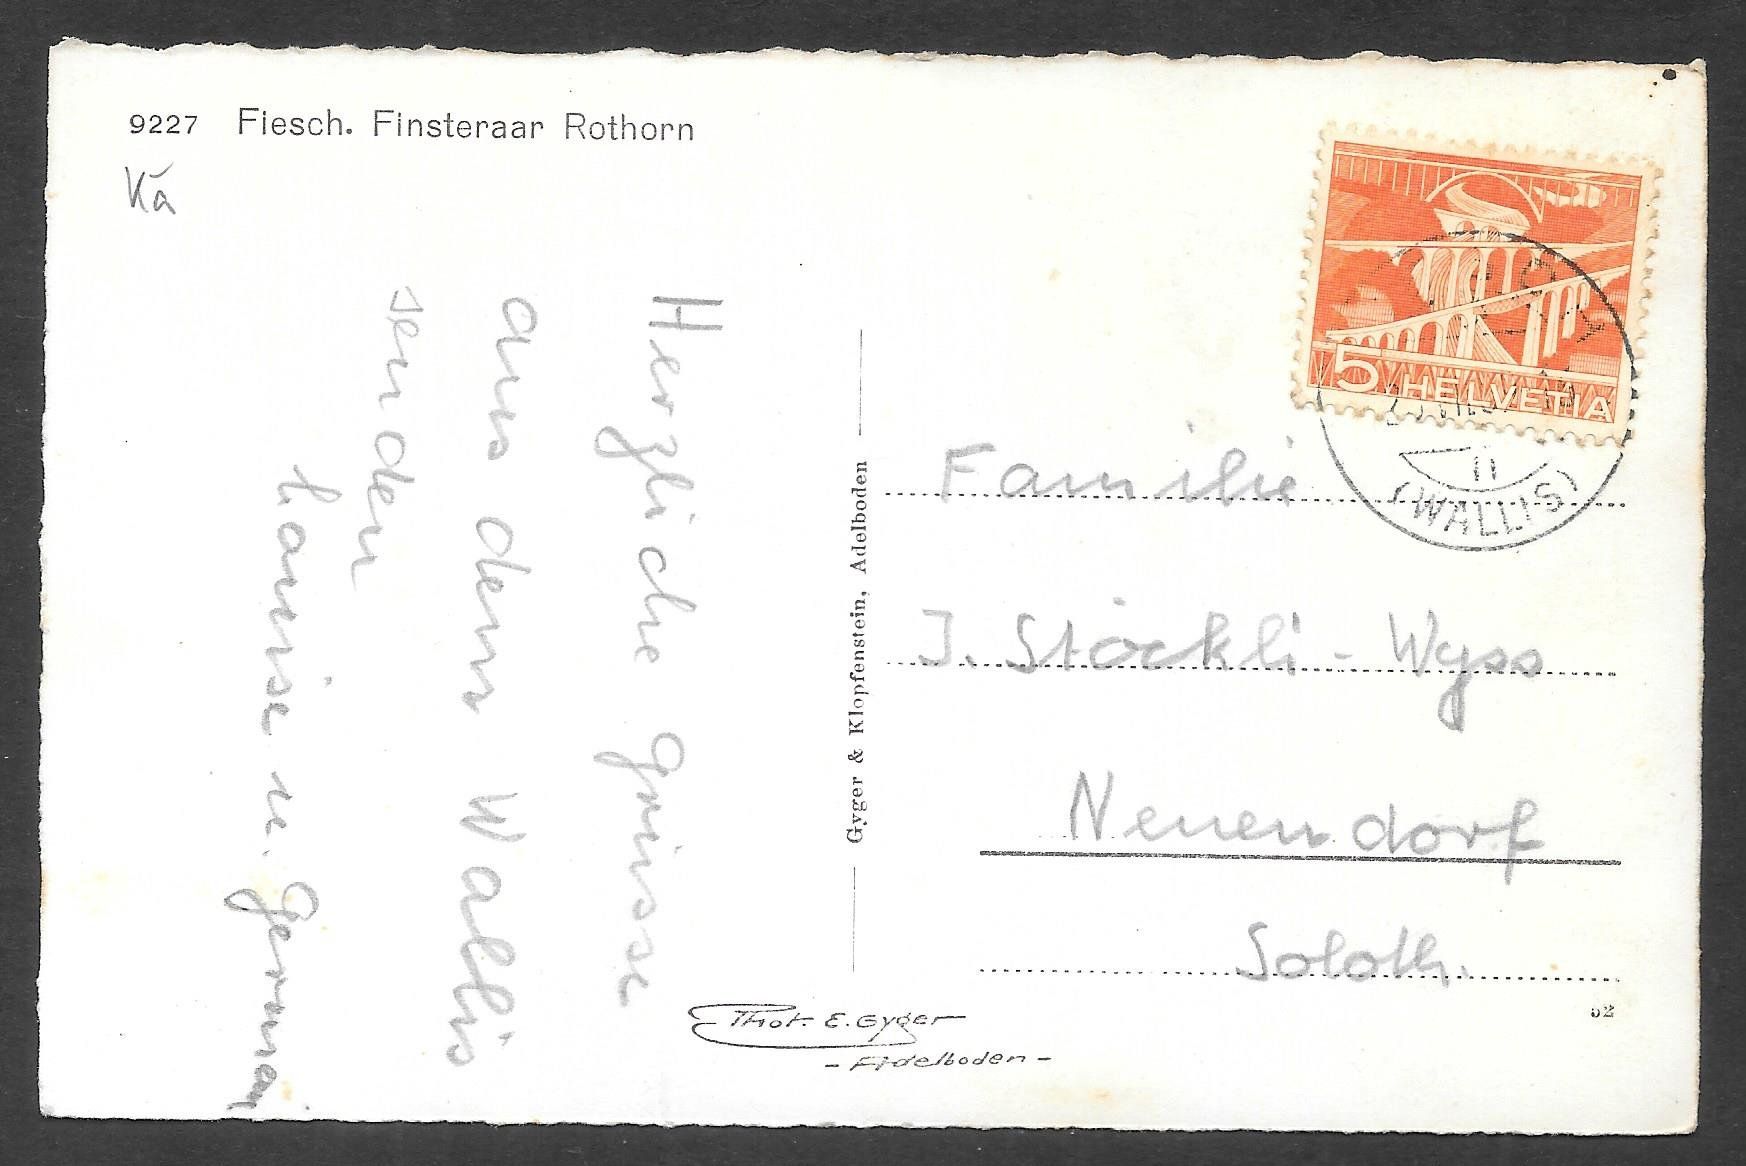 9227 Fiesch. Finsteraar Rothorn
Kā
Herzliche Grüsse
aus dem Wallis
senden
Louise u. German
Gyger & Klopfenstein, Adelboden
5 HELVETIA
(WALLIS)
Familie
J. Stöckli - Wyss
Neuendorf
Soloth.
52
Phot. E. Gyger
- Adelboden -